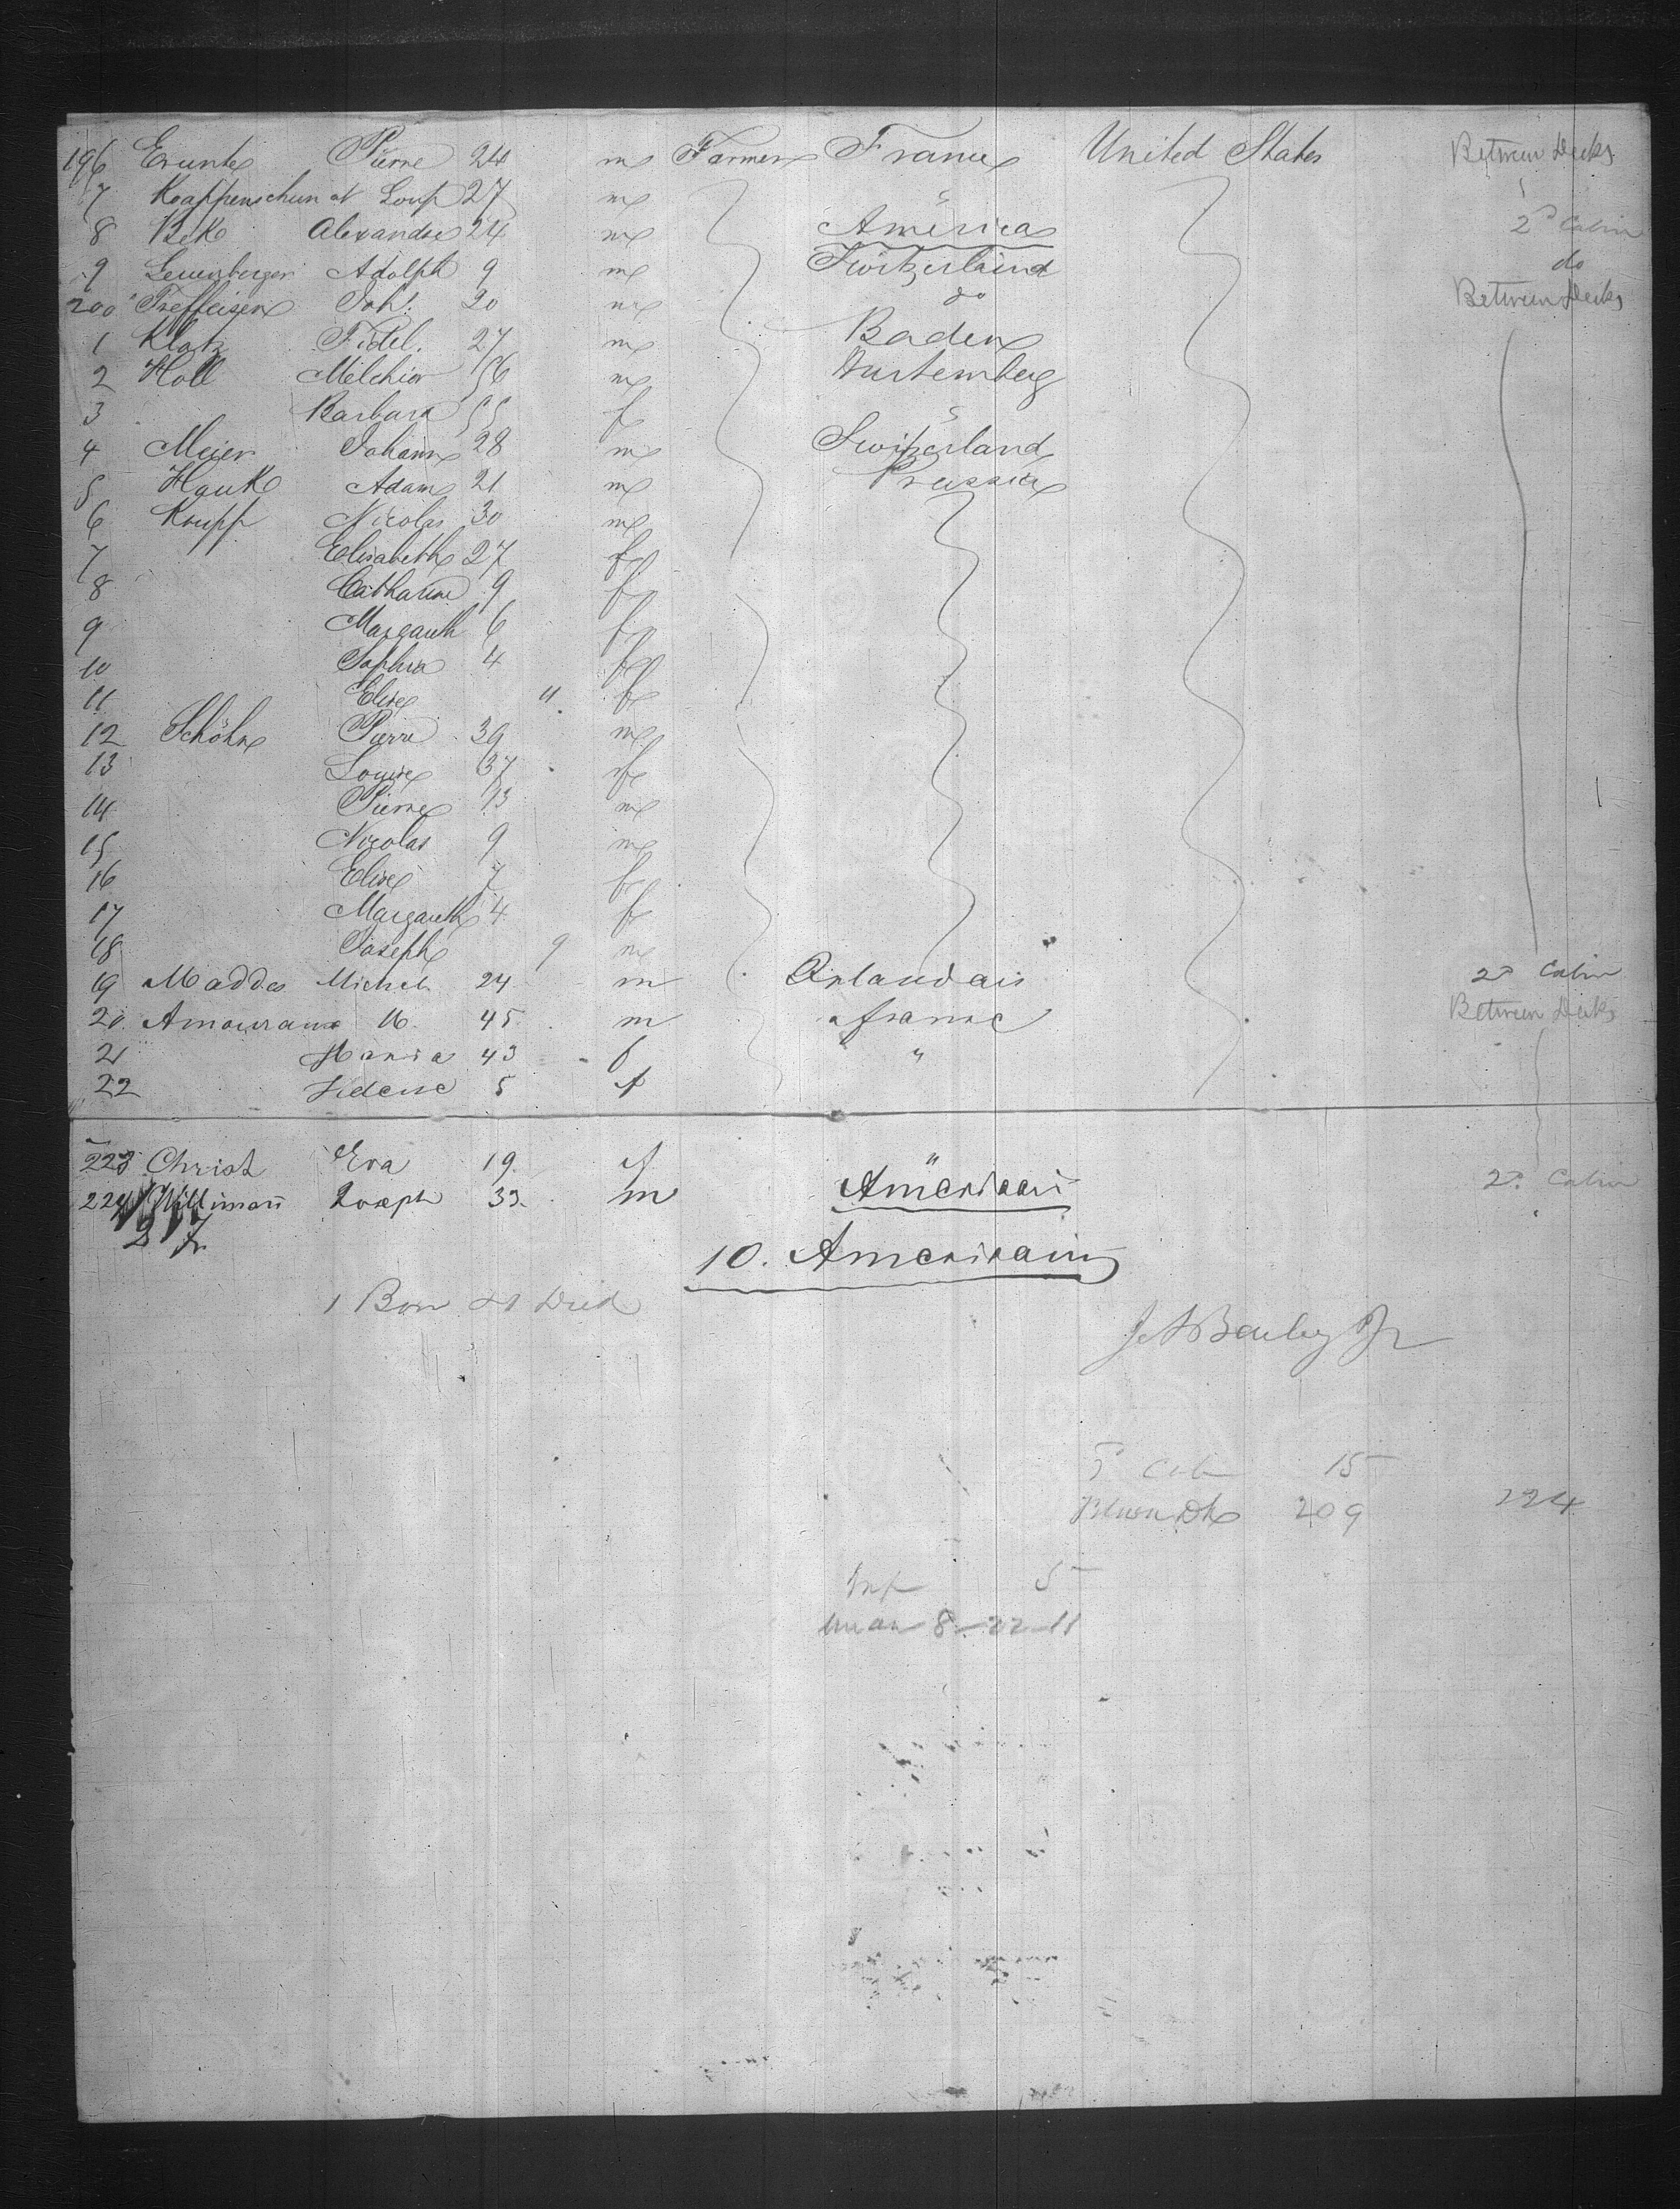 196 Erunte Pierre 24 m Farmer France United States Between Decks
7 Krappenschun st Loup 27 m "
8 Beck Alexandre 24 m America 2d Cabin
9 Leuenberger Adolph 9 m Switzerland do
200 Treffeisen Joh. 20 m do Between Decks
1 Klotz Fidel. 27 m Baden
2 Holl Melchior 56 m Wurtemberg
3 Barbara 55 f "
4 Meier Johann 28 m Switzerland
5 Hauk Adam 21 m Prussia
6 Krupp Nicolas 30 m
7 Elisabeth 27 f
8 Catharine 9 f
9 Margareth 6 f
10 Sophia 4 f
11 Elise 11 f
12 Schöhn Pierre 39 m
13 Louise 37 f
14 Pierre 13 m
15 Nicolas 9 m
16 Elise 7 f
17 Margareth 4 f
18 Joseph 9 m
19 Maddes Michel 24 m Orlandais 2d Cabin
20 Amouraux 45 m france Between Decks
21 Maria 43 f "
22 5 f
223 Christ Eva 19. f "
224 Willimann Joseph 33. m Américain 2d Cabin
10. Américains
1 Born & 1 Died
J A Bailey Jr
2d Cab 15
Btween Dks 209 224
Inf 5
8-22-11